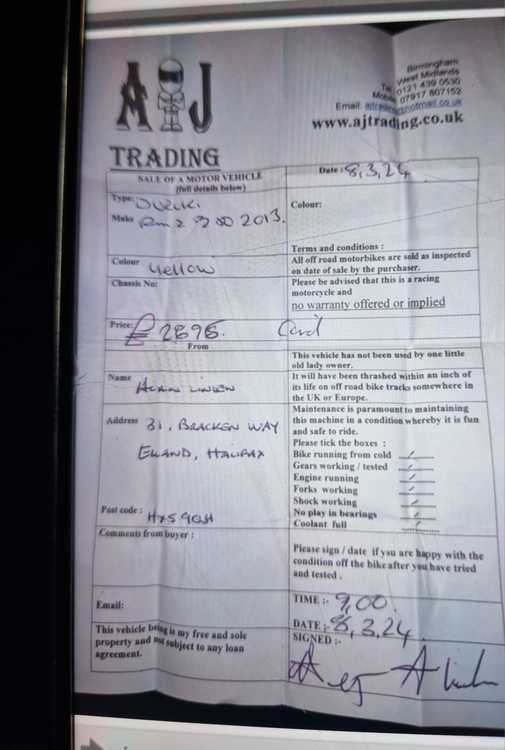 AJ
TRADING
Birmingham
West Midlands
Tel: 0121 439 0530
Mobile: 07917 807152
Email:
www.ajtrading.co.uk
SALE OF A MOTOR VEHICLE
(full details below)
Date : 8,3,24
Type:
Make 2013.
Colour:
Terms and conditions :
Colour Yellow
All off road motorbikes are sold as inspected
on date of sale by the purchaser.
Chassis No:
Please be advised that this is a racing
motorcycle and
no warranty offered or implied
Price: £ 2895. Card
From
This vehicle has not been used by one little
old lady owner.
Name
It will have been thrashed within an inch of
its life on off road bike tracks somewhere in
the UK or Europe.
Address 31, BRACKEN WAY
ELLAND, HALIFAX
Maintenance is paramount to maintaining
this machine in a condition whereby it is fun
and safe to ride.
Please tick the boxes :
Bike running from cold
Gears working / tested
Engine running
Forks working
Shock working
No play in bearings
Coolant full
Post code : HX5 9QH
Comments from buyer :
Please sign / date if you are happy with the
condition off the bike after you have tried
and tested .
Email:
TIME :- 9,00.
DATE :- 8,3,24.
SIGNED :-
This vehicle being is my free and sole
property and not subject to any loan
agreement.